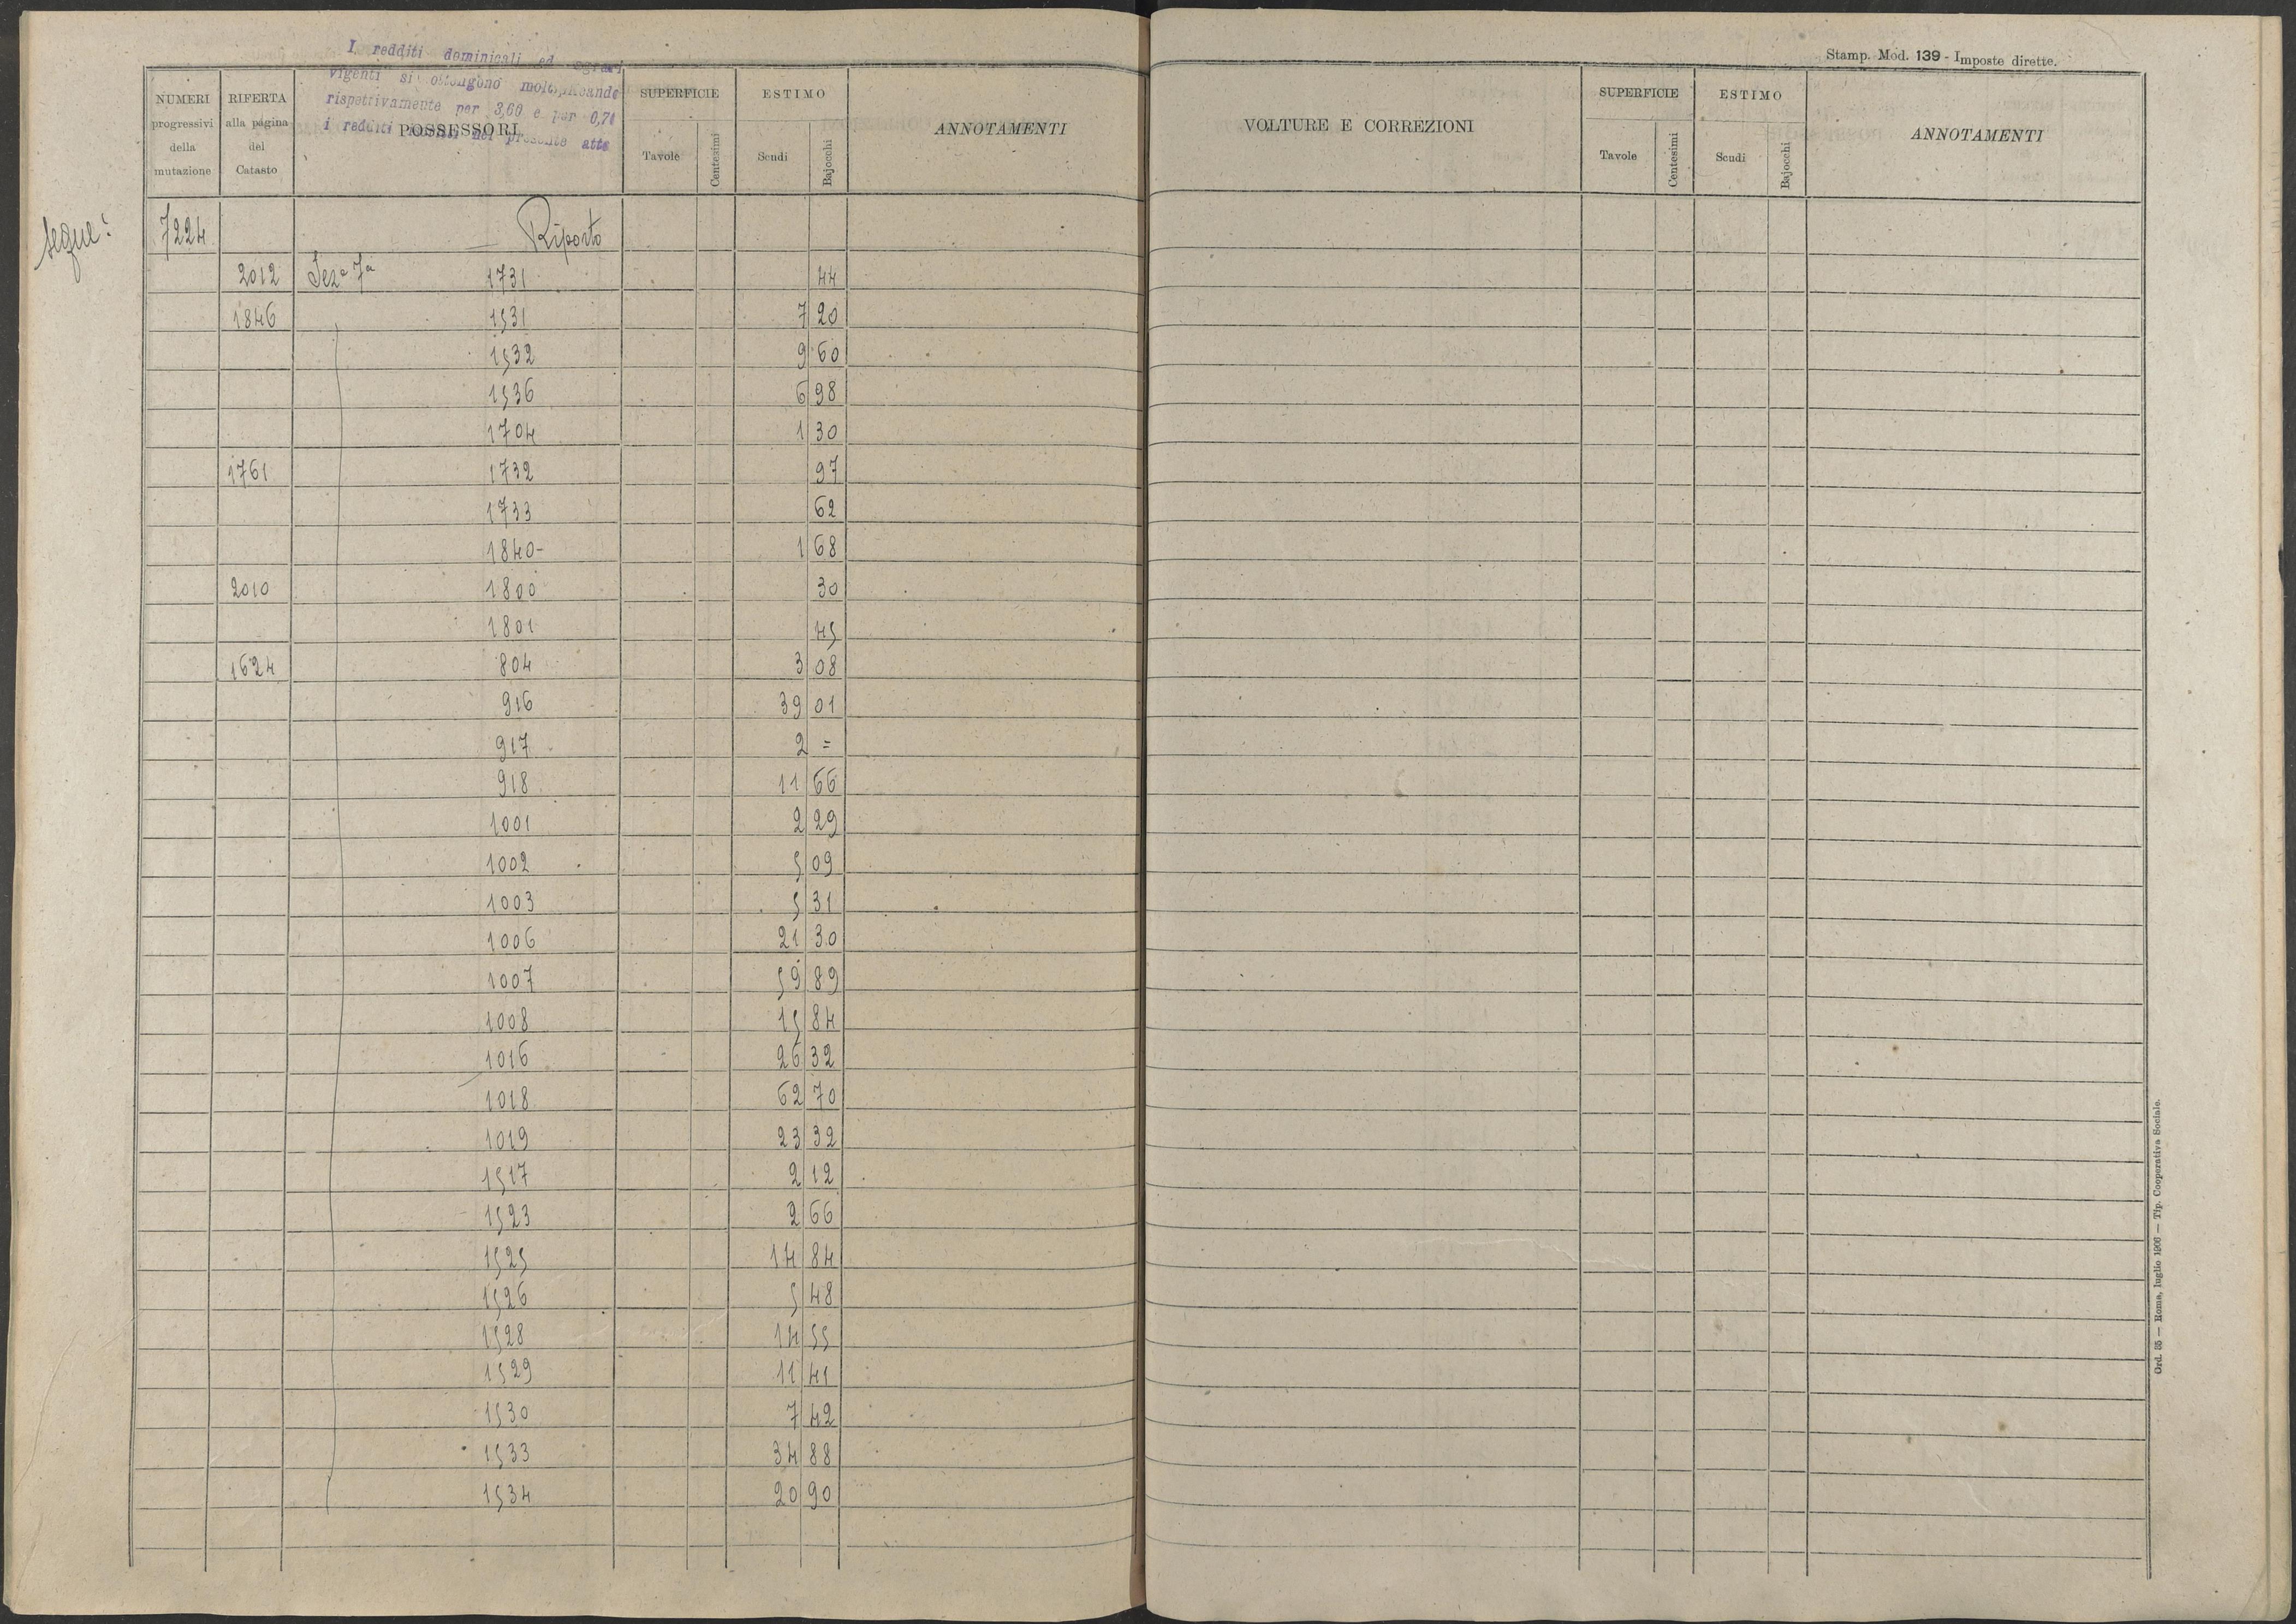 I redditi dominicali ed agrari
vigenti si ottengono moltiplicando
rispettivamente per 3,60 e per 0,71
i redditi nel presente atto
NUMERI progressivi della mutazione
RIFERTA alla pagina del Catasto
POSSESSORI
SUPERFICIE
Tavole
Centesimi
ESTIMO
Scudi
Bajocchi
ANNOTAMENTI
segue:
7224 Riporto
2012 Seza 7a 1731 44
1846 1531 7 20
1532 9 60
1536 6 98
1704 1 30
1761 1732 97
1733 62
1840- 1 68
2010 1800 30
1801 45
1624 804 3 08
916 39 01
917 2 =
918 11 66
1001 2 29
1002 5 09
1003 5 31
1006 21 30
1007 59 89
1008 15 84
1016 26 32
1018 62 70
1019 23 32
1517 2 12
1523 2 66
1525 14 84
1526 5 48
1528 14 55
1529 11 41
1530 7 42
1533 34 88
1534 20 90
Stamp. Mod. 139 - Imposte dirette.
VOLTURE E CORREZIONI
SUPERFICIE
Tavole
Centesimi
ESTIMO
Scudi
Bajocchi
ANNOTAMENTI
Ord. 55 — Roma, luglio 1906 — Tip. Cooperativa Sociale.